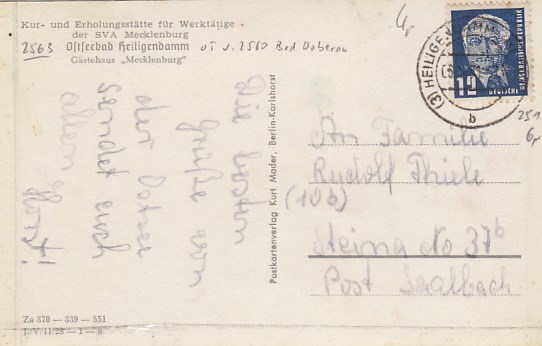 Kur- und Erholungsstätte für Werktätige
der SVA Mecklenburg
2563 Ostseebad Heiligendamm OT v. 2560 Bad Doberan
Gästehaus „Mecklenburg"
Die besten
Grüße von
der Ostsee
sendet euch
allen Horst!
Postkartenverlag Kurt Mader, Berlin-Karlshorst
12
DEUTSCHE
DEMOKRATISCHE REPUBLIK
(3) HEILIGENDAMM
b
251
An Familie
Rudolf Thiele
(10b)
Steina No 37b
Post Saalbach
Za 370 — 339 — 551